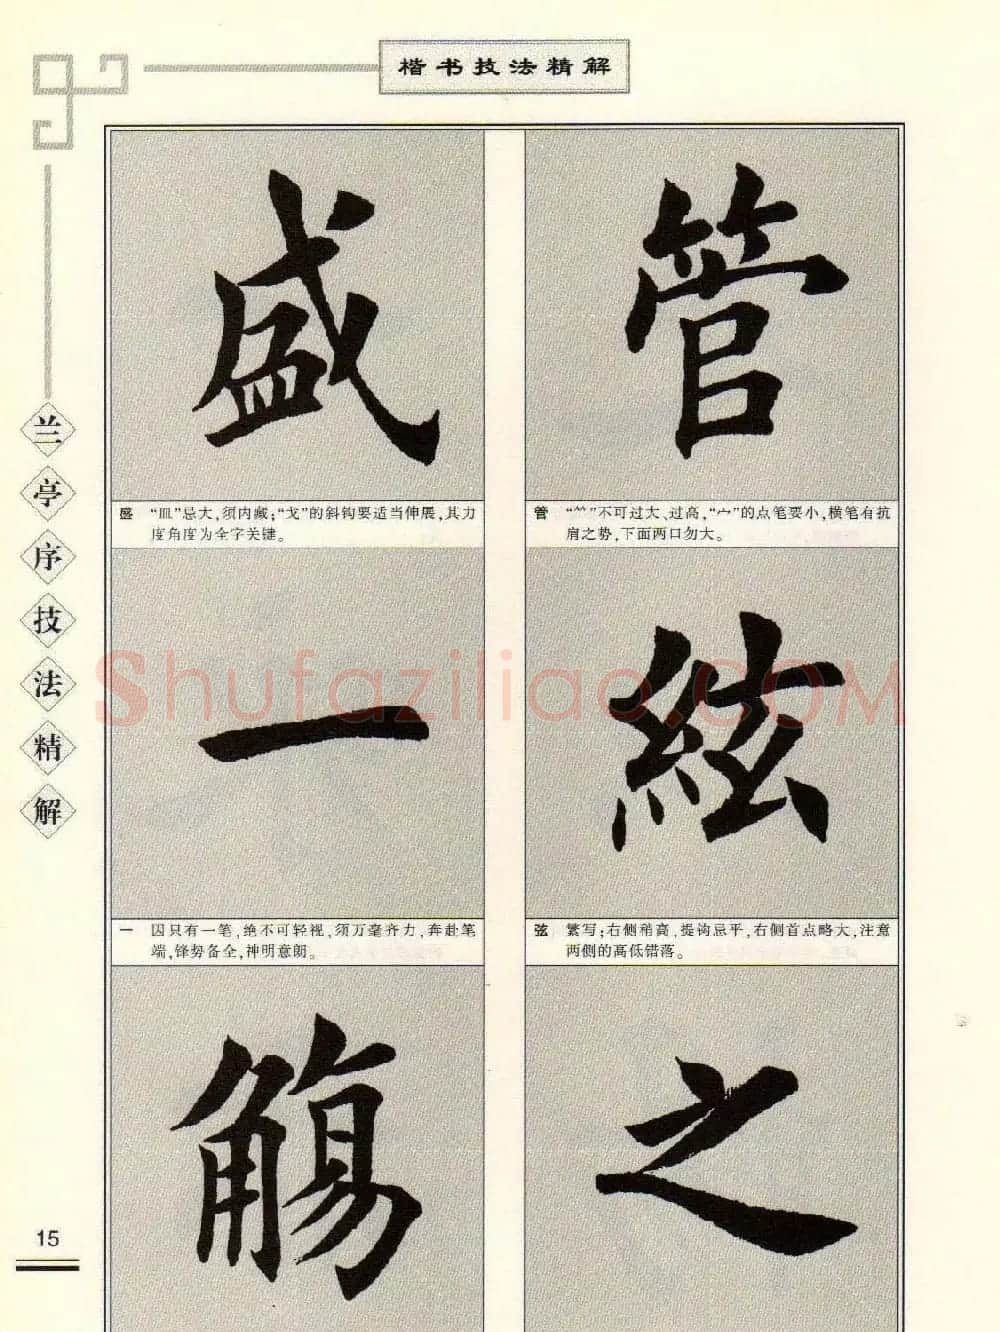 楷书技法精解
兰亭序技法精解
管
管 “⺮”不可过大、过高,“宀”的点笔要小,横笔有抗
肩之势,下面两口勿大。
絃
弦 繁写;右侧稍高,提钩忌平,右侧首点略大,注意
两侧的高低错落。
之
盛
盛 “皿”忌大,须内藏;“戈”的斜钩要适当伸展,其力
度角度为全字关键。
一
一 因只有一笔,绝不可轻视,须万毫齐力,奔赴笔
端,锋势备全,神明意朗。
觞
Shufaziliao.COM
15